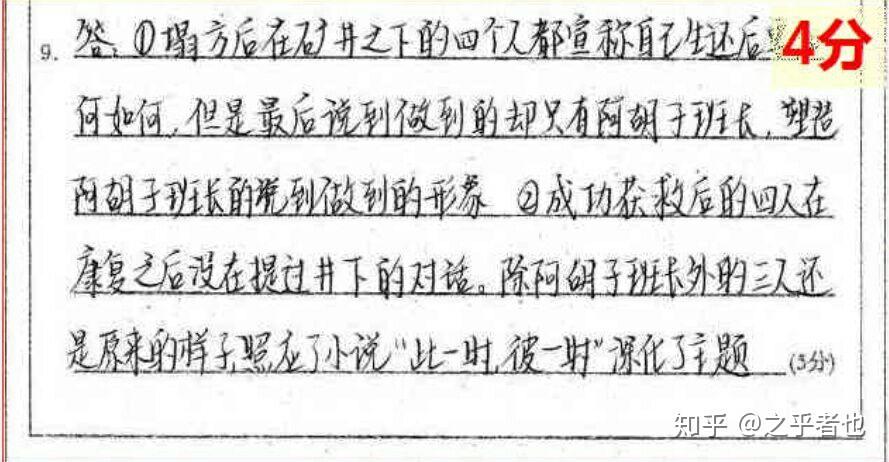 9. 答：①塌方后在矿井之下的四个人都宣称自己生还后
4分
何如何，但是最后说到做到的却只有阿胡子班长，塑造
阿胡子班长的说到做到的形象 ②成功获救后的四人在
康复之后没在提过井下的对话。除阿胡子班长外的三人还
是原来的样子，照应了小说“此一时，彼一时”深化了主题 (5分)
知乎 @之乎者也